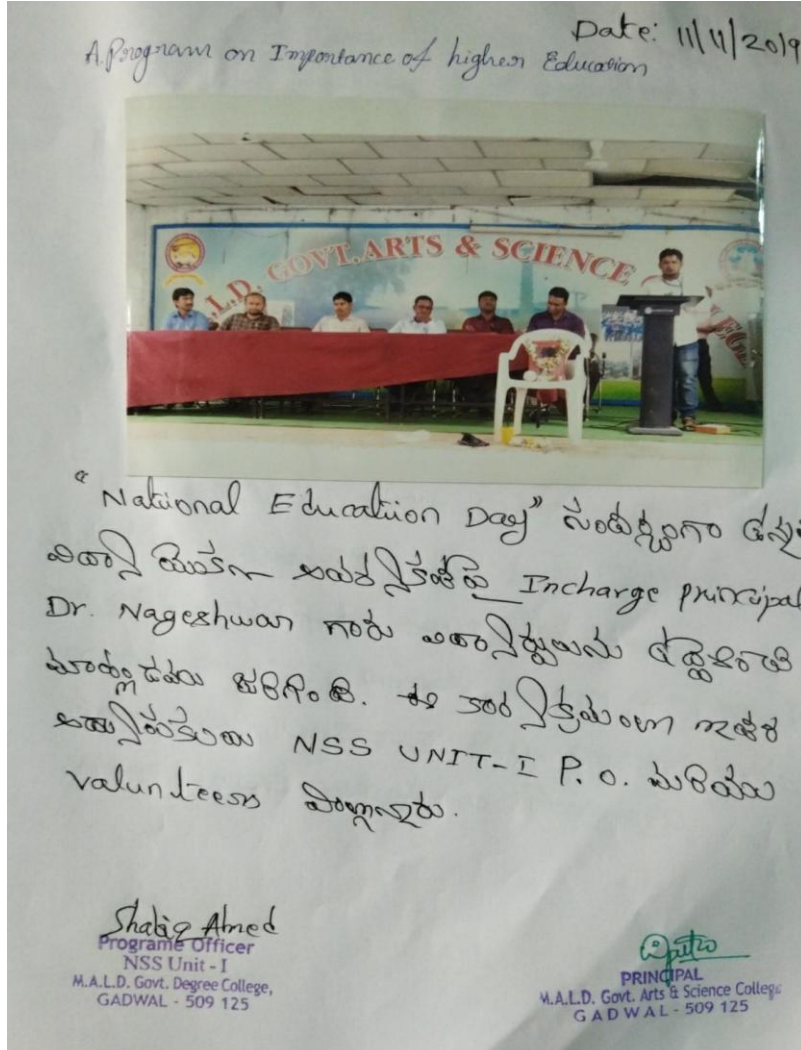 Date: 11/11/2019
A Program on Importance of higher Education
GOVT. ARTS & SCIENCE
"National Education Day" సందర్భంగా ఉన్నత
విద్య యొక్క ఆవశ్యకతపై Incharge principal
Dr. Nageshwar గారు విద్యార్థులను ఉద్దేశించి
మాట్లాడడము జరిగింది. ఈ కార్యక్రమంలో ఇతర
అధ్యాపకులు NSS UNIT-I P.O. మరియు
valunteers పాల్గొన్నారు.
Shafiq Ahmed
Programe Officer
NSS Unit - I
M.A.L.D. Govt. Degree College,
GADWAL - 509 125
PRINCIPAL
M.A.L.D. Govt. Arts & Science College
GADWAL - 509 125